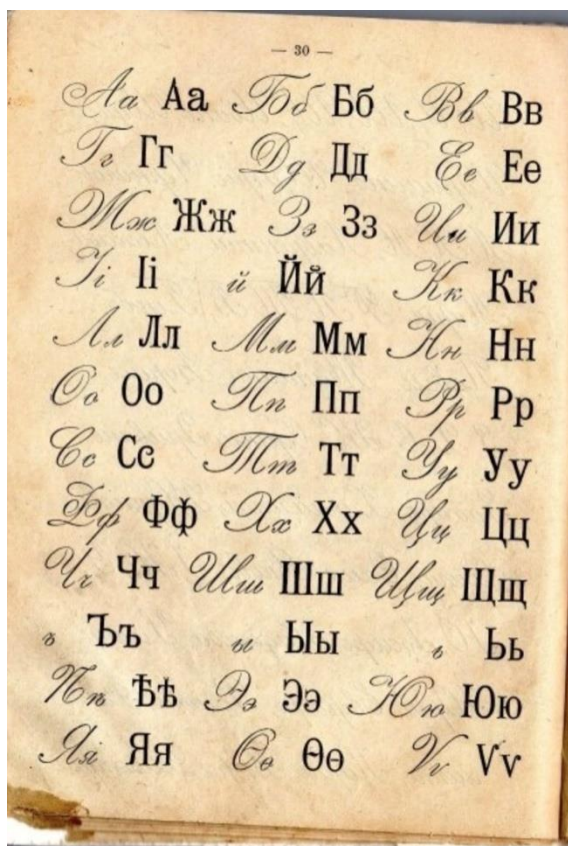 — 30 —
Аа Аа Бб Бб Вв Вв
Гг Гг Дд Дд Ее Ее
Жж Жж Зз Зз Ии Ии
Іі Іі й Йй Кк Кк
Лл Лл Мм Мм Нн Нн
Оо Оо Пп Пп Рр Рр
Сс Сс Тт Тт Уу Уу
Фф Фф Хх Хх Цц Цц
Чч Чч Шш Шш Щщ Щщ
ъ Ъъ ы Ыы ь Ьь
Ѣѣ Ѣѣ Ээ Ээ Юю Юю
Яя Яя Ѳѳ Ѳѳ Ѵѵ Ѵѵ